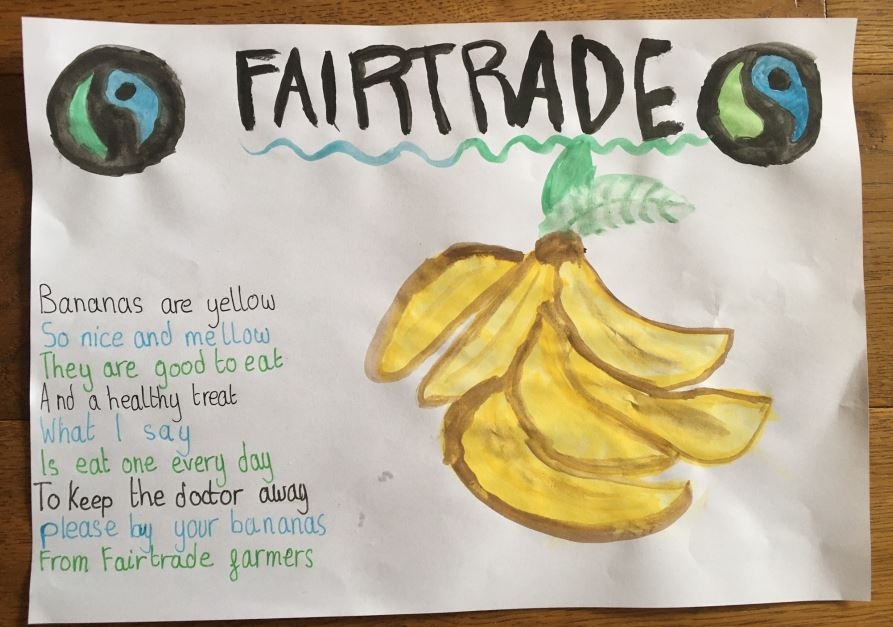 FAIRTRADE
Bananas are yellow
So nice and mellow
They are good to eat
And a healthy treat
What I say
Is eat one every day
To keep the doctor away
please buy your bananas
From Fairtrade farmers